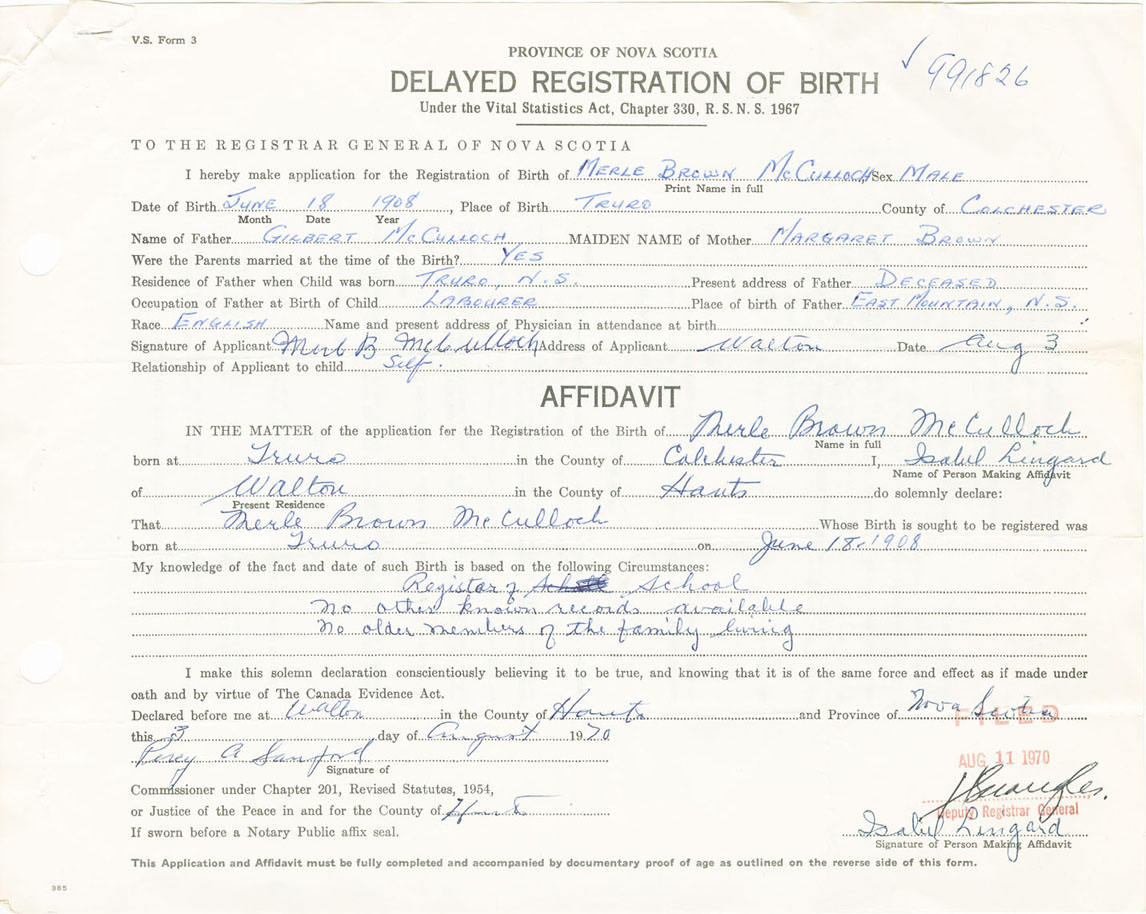 V.S. Form 3
PROVINCE OF NOVA SCOTIA
991826
DELAYED REGISTRATION OF BIRTH
Under the Vital Statistics Act, Chapter 330, R.S.N.S. 1967
TO THE REGISTRAR GENERAL OF NOVA SCOTIA
I hereby make application for the Registration of Birth of MERLE BROWN McCULLOCH Sex MALE
Print Name in full
Date of Birth JUNE 18 1908, Place of Birth TRURO County of COLCHESTER
Month Date Year
Name of Father GILBERT McCULLOCH MAIDEN NAME of Mother MARGARET BROWN
Were the Parents married at the time of the Birth? YES
Residence of Father when Child was born TRURO, N.S. Present address of Father DECEASED
Occupation of Father at Birth of Child LABOURER Place of birth of Father EAST MOUNTAIN, N.S.
Race ENGLISH Name and present address of Physician in attendance at birth
Signature of Applicant Merl B McCulloch Address of Applicant Walton Date Aug 3
Relationship of Applicant to child Self.
AFFIDAVIT
IN THE MATTER of the application for the Registration of the Birth of Merle Brown McCulloch
Name in full
born at Truro in the County of Colchester I, Isabel Lingard
Name of Person Making Affidavit
of Walton in the County of Hants do solemnly declare:
Present Residence
That Merle Brown McCulloch Whose Birth is sought to be registered was
born at Truro on June 18-1908
My knowledge of the fact and date of such Birth is based on the following Circumstances:
Register of School
No other known records available
No older members of the family living
I make this solemn declaration conscientiously believing it to be true, and knowing that it is of the same force and effect as if made under
oath and by virtue of The Canada Evidence Act.
Declared before me at Walton in the County of Hants and Province of Nova Scotia
FILED
this 3 day of August 1970
Percy A Sanford
Signature of
AUG 11 1970
Commissioner under Chapter 201, Revised Statutes, 1954,
or Justice of the Peace in and for the County of Hants
Deputy Registrar General
If sworn before a Notary Public affix seal.
Isabel Lingard
Signature of Person Making Affidavit
This Application and Affidavit must be fully completed and accompanied by documentary proof of age as outlined on the reverse side of this form.
385